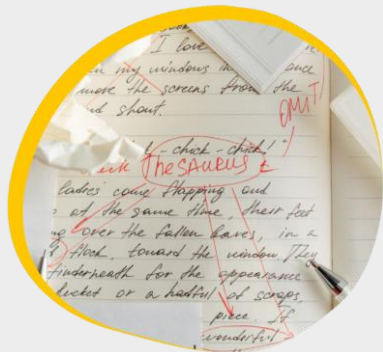 I love
in my windows
move the screens from the
nd shout.
OMIT
- chick - chick! "
THESAURUS
ladies come flapping and
at the same time, their feet
over the fallen leaves, in a
flock, toward the window. They
underneath for the appearance
bucket or a hadful of scraps,
piece. If
wonderful